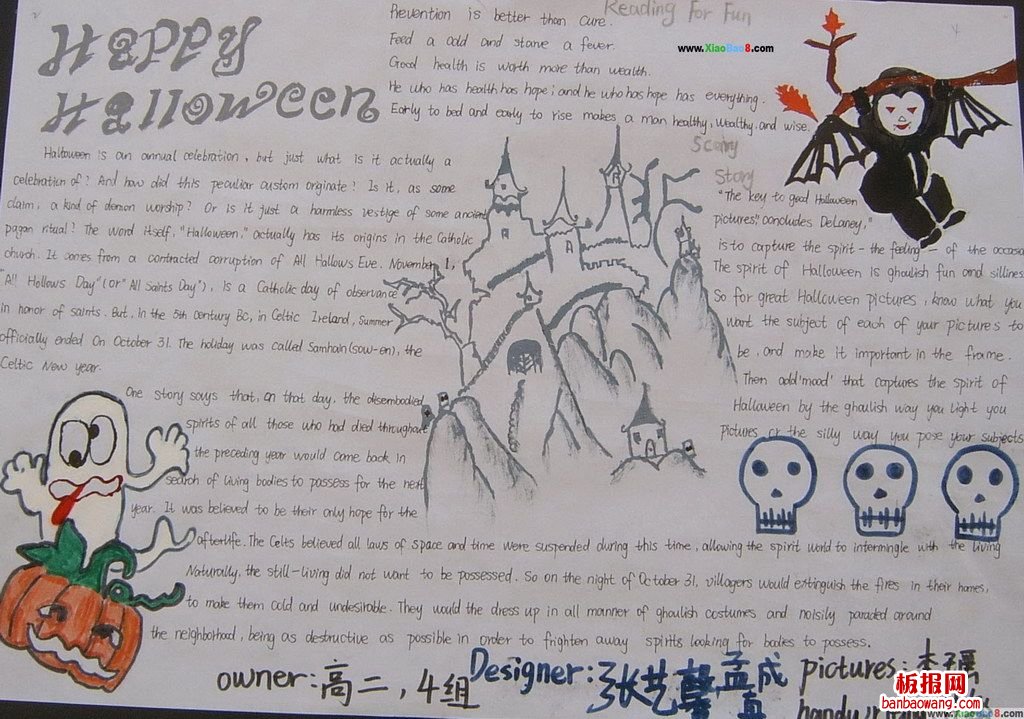 Happy
Halloween
Reading For Fun
Prevention is better than cure.
Feed a cold and starve a fever.
Good health is worth more than wealth.
He who has health has hope; and he who has hope has everything.
Early to bed and early to rise makes a man healthy, wealthy, and wise.
www.XiaoBao8.com
Halloween is an annual celebration, but just what is it actually a
celebration of? And how did this peculiar custom originate? Is it, as some
claim, a kind of demon worship? Or is it just a harmless vestige of some ancient
pagan ritual? The word itself, "Halloween," actually has its origins in the Catholic
church. It comes from a contracted corruption of All Hallows Eve. November 1,
"All Hollows Day" (or "All Saints Day"), is a Catholic day of observance
in honor of saints. But, in the 5th century BC, in Celtic Ireland, summer
officially ended On October 31. The holiday was called Samhain (sow-en), the
Celtic New year.
One story says that, on that day, the disembodied
spirits of all those who had died throughout
the preceding year would come back in
search of living bodies to possess for the next
year. It was believed to be their only hope for the
afterlife. The Celts believed all laws of space and time were suspended during this time, allowing the spirit world to intermingle with the living
Naturally, the still-living did not want to be possessed. So on the night of October 31, villagers would extinguish the fires in their homes,
to make them cold and undesirable. They would the dress up in all manner of ghoulish costumes and noisily paraded around
the neighborhood, being as destructive as possible in order to frighten away spirits looking for bodies to possess.
Scary
Story
"The key to good Halloween
pictures," concludes DeLaney,"
is to capture the spirit - the feeling - of the occasion
The spirit of Halloween is ghoulish fun and silliness
So for great Halloween pictures, know what you
want the subject of each of your pictures to
be, and make it important in the frame.
Then add 'mood' that captures the spirit of
Halloween by the ghoulish way you light you
pictures or the silly way you pose your subjects
owner:高二,4组
Designer:张艺馨 孟成真
pictures:李
板报网
banbaowang.com
www.XiaoBao8.com